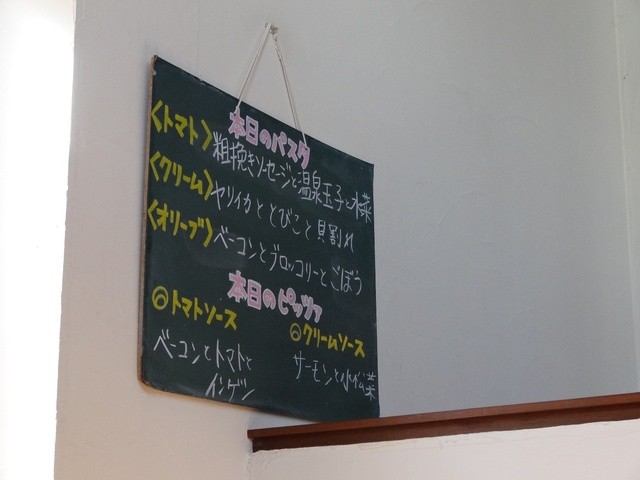 本日のパスタ
〈トマト〉粗挽きソーセージと温泉玉子と水菜
〈クリーム〉ヤリイカととびこと貝割れ
〈オリーブ〉ベーコンとブロッコリーとごぼう
本日のピッツァ
◎トマトソース
ベーコンとトマトと
インゲン
◎クリームソース
サーモンと小松菜